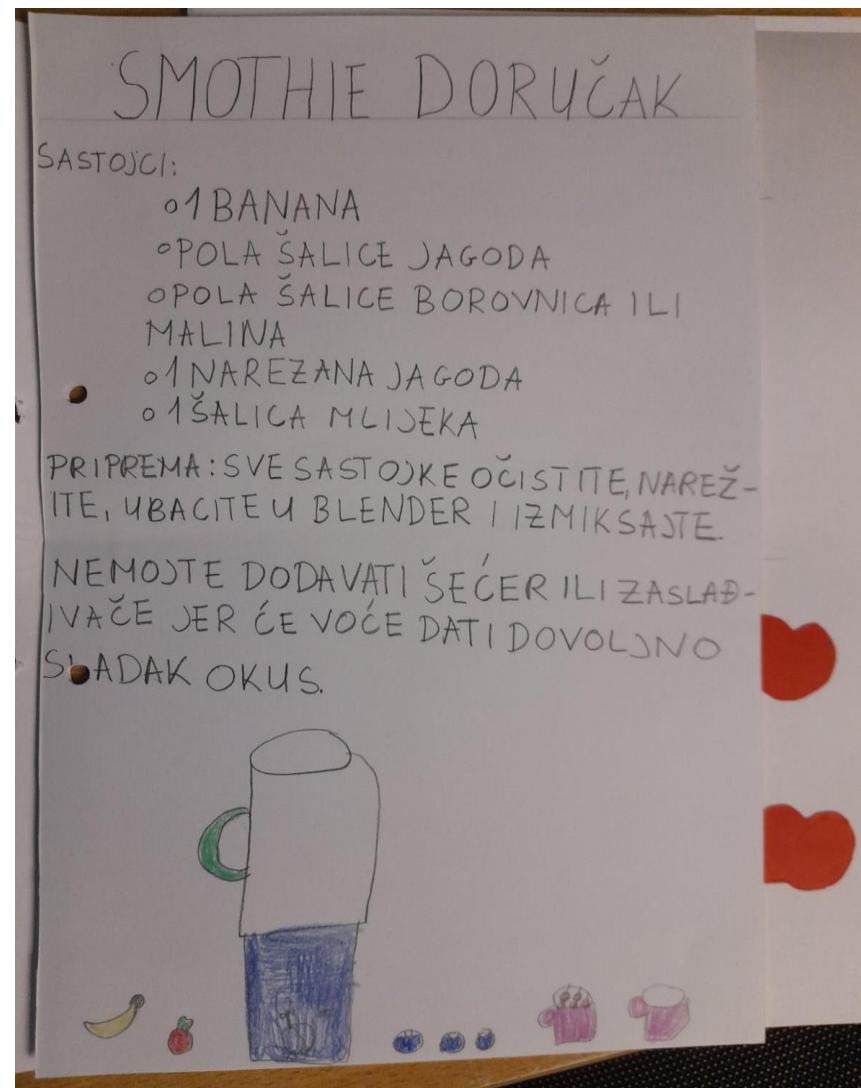 SMOTHIE DORUČAK
SASTOJCI:
o 1 BANANA
o POLA ŠALICE JAGODA
o POLA ŠALICE BOROVNICA ILI
MALINA
o 1 NAREZANA JAGODA
o 1 ŠALICA MLIJEKA
PRIPREMA: SVE SASTOJKE OČISTITE, NAREŽ-
ITE, UBACITE U BLENDER I IZMIKSAJTE.
NEMOJTE DODAVATI ŠEĆER ILI ZASLAĐ-
IVAČE JER ĆE VOĆE DATI DOVOLJNO
SLADAK OKUS.